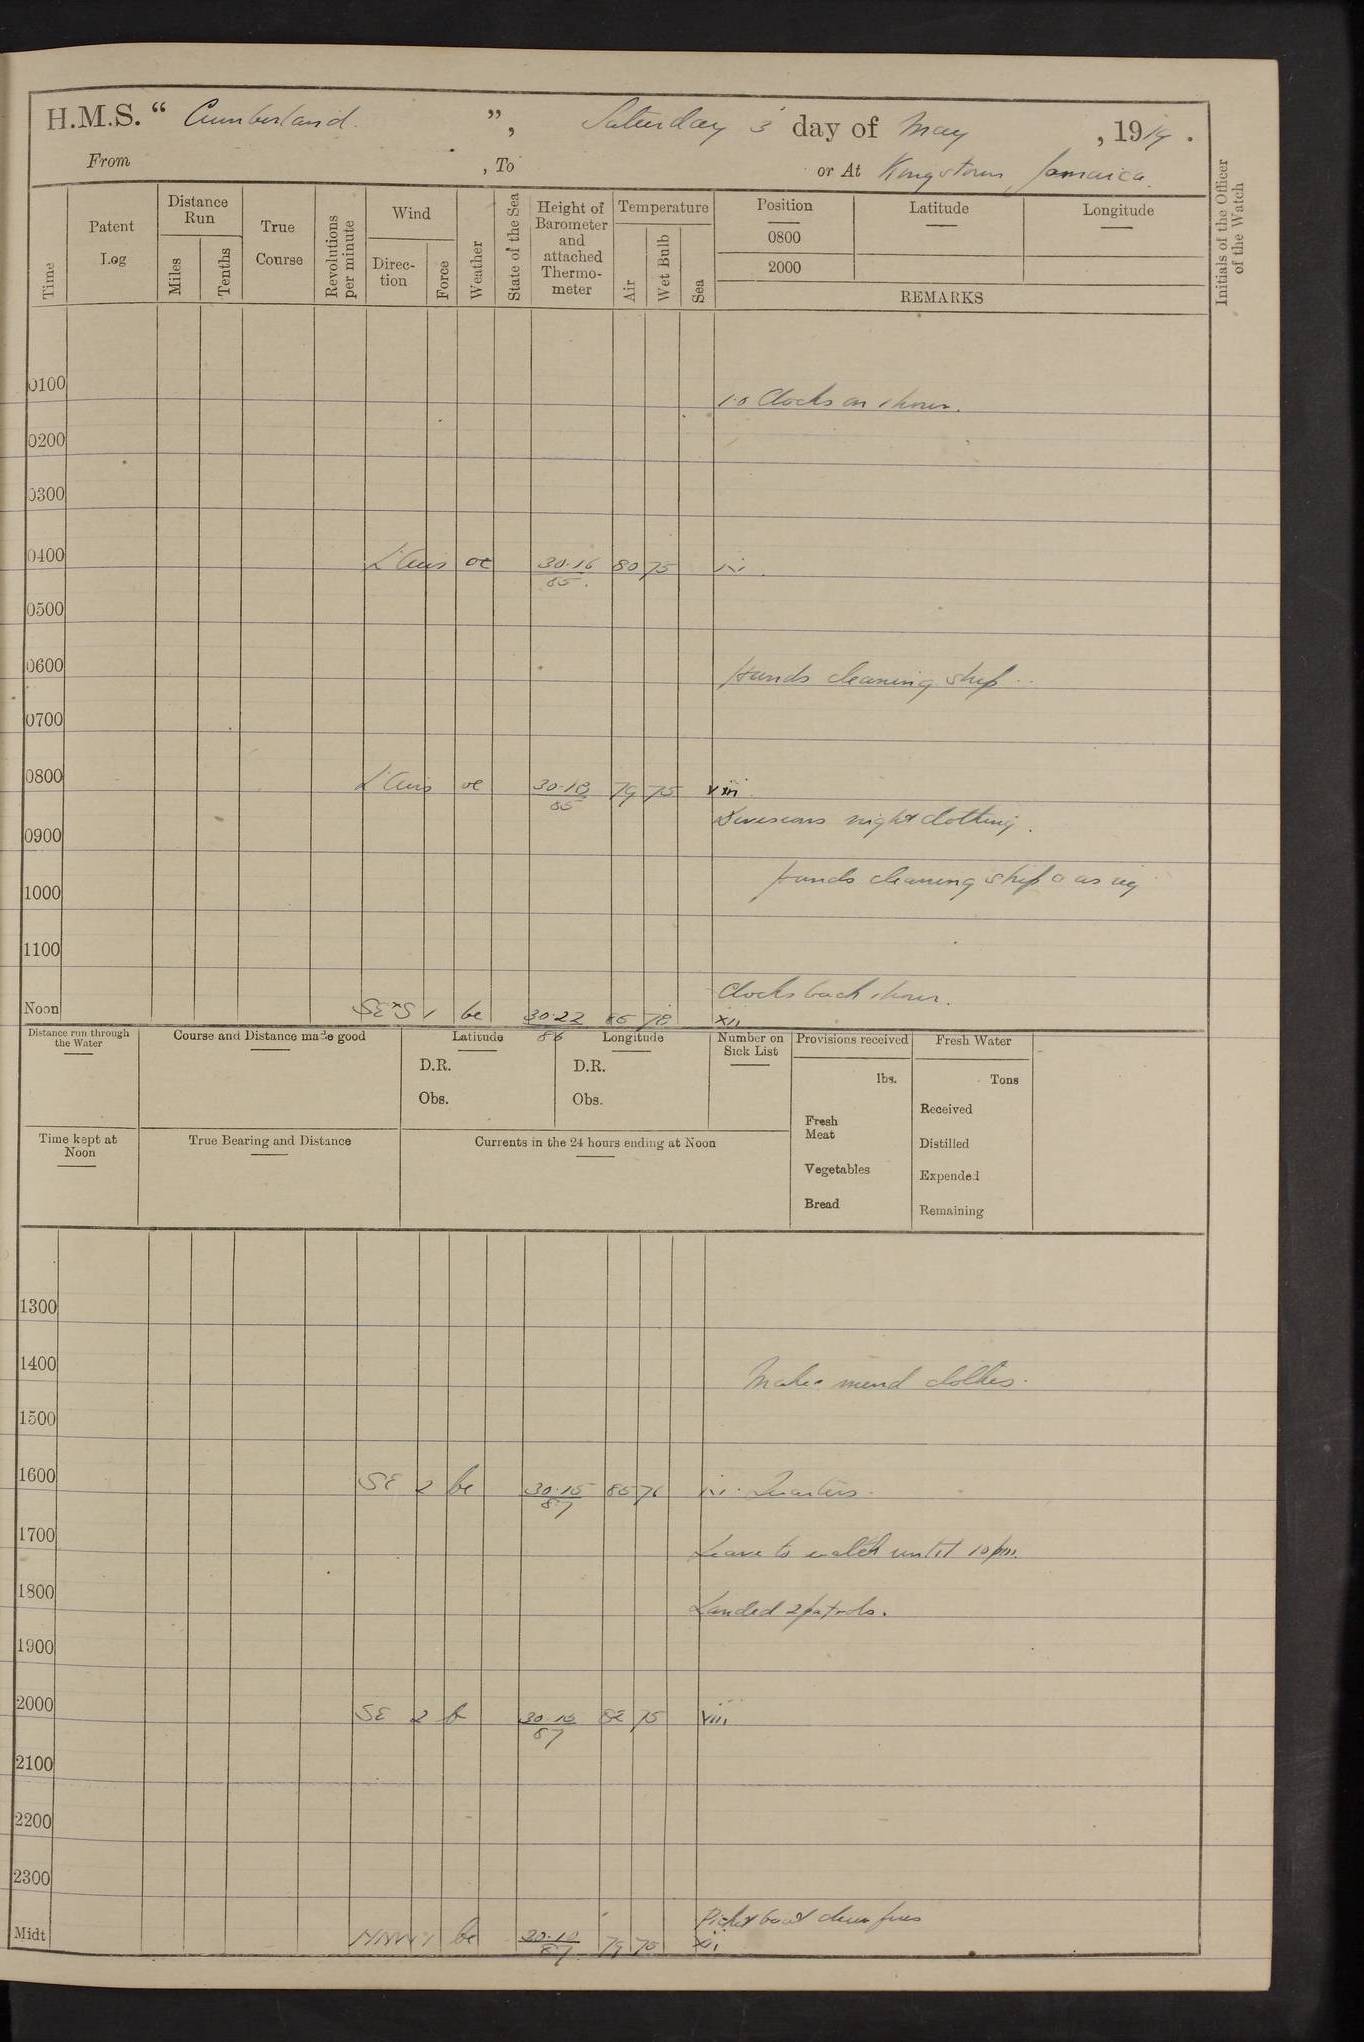 H.M.S. “ Cumberland ”, Saturday 3 day of May , 1919 .
From , To or At Kingstown Jamaica.
Time
Patent Log
Distance Run
Miles
Tenths
True Course
Revolutions per minute
Wind
Direction
Force
Weather
State of the Sea
Height of Barometer and attached Thermometer
Temperature
Air
Wet Bulb
Sea
Position
0800
2000
Latitude
Longitude
REMARKS
Initials of the Officer of the Watch
0100
1.0 Clocks on 1 hour.
0200
0300
0400 L'Airs oc 30.16 80 75 iv.
85.
0500
0600
Hands cleaning ship
0700
0800 L'Airs oc 30.18 79 75 viii
85
Divisions night clothing.
0900
Hands cleaning ship & as req
1000
1100
Clocks back 1 hour.
Noon SE x S 1 bc 30.22 85 78 xii
86
Distance run through the Water
Course and Distance made good
Latitude
D.R.
Obs.
Longitude
D.R.
Obs.
Number on Sick List
Provisions received
lbs.
Fresh Meat
Vegetables
Bread
Fresh Water
Tons
Received
Distilled
Expended
Remaining
Time kept at Noon
True Bearing and Distance
Currents in the 24 hours ending at Noon
1300
1400
Make mend clothes.
1500
1600 SE 2 bc 30.15 85 76 iv. Quarters.
87
1700
Leave to watch until 10 pm.
1800
Landed 2 patrols.
1900
2000 SE 2 b 82 75 viii
87
2100
2200
2300
Picket boat down fires
Midt bc 79 75 xii
87